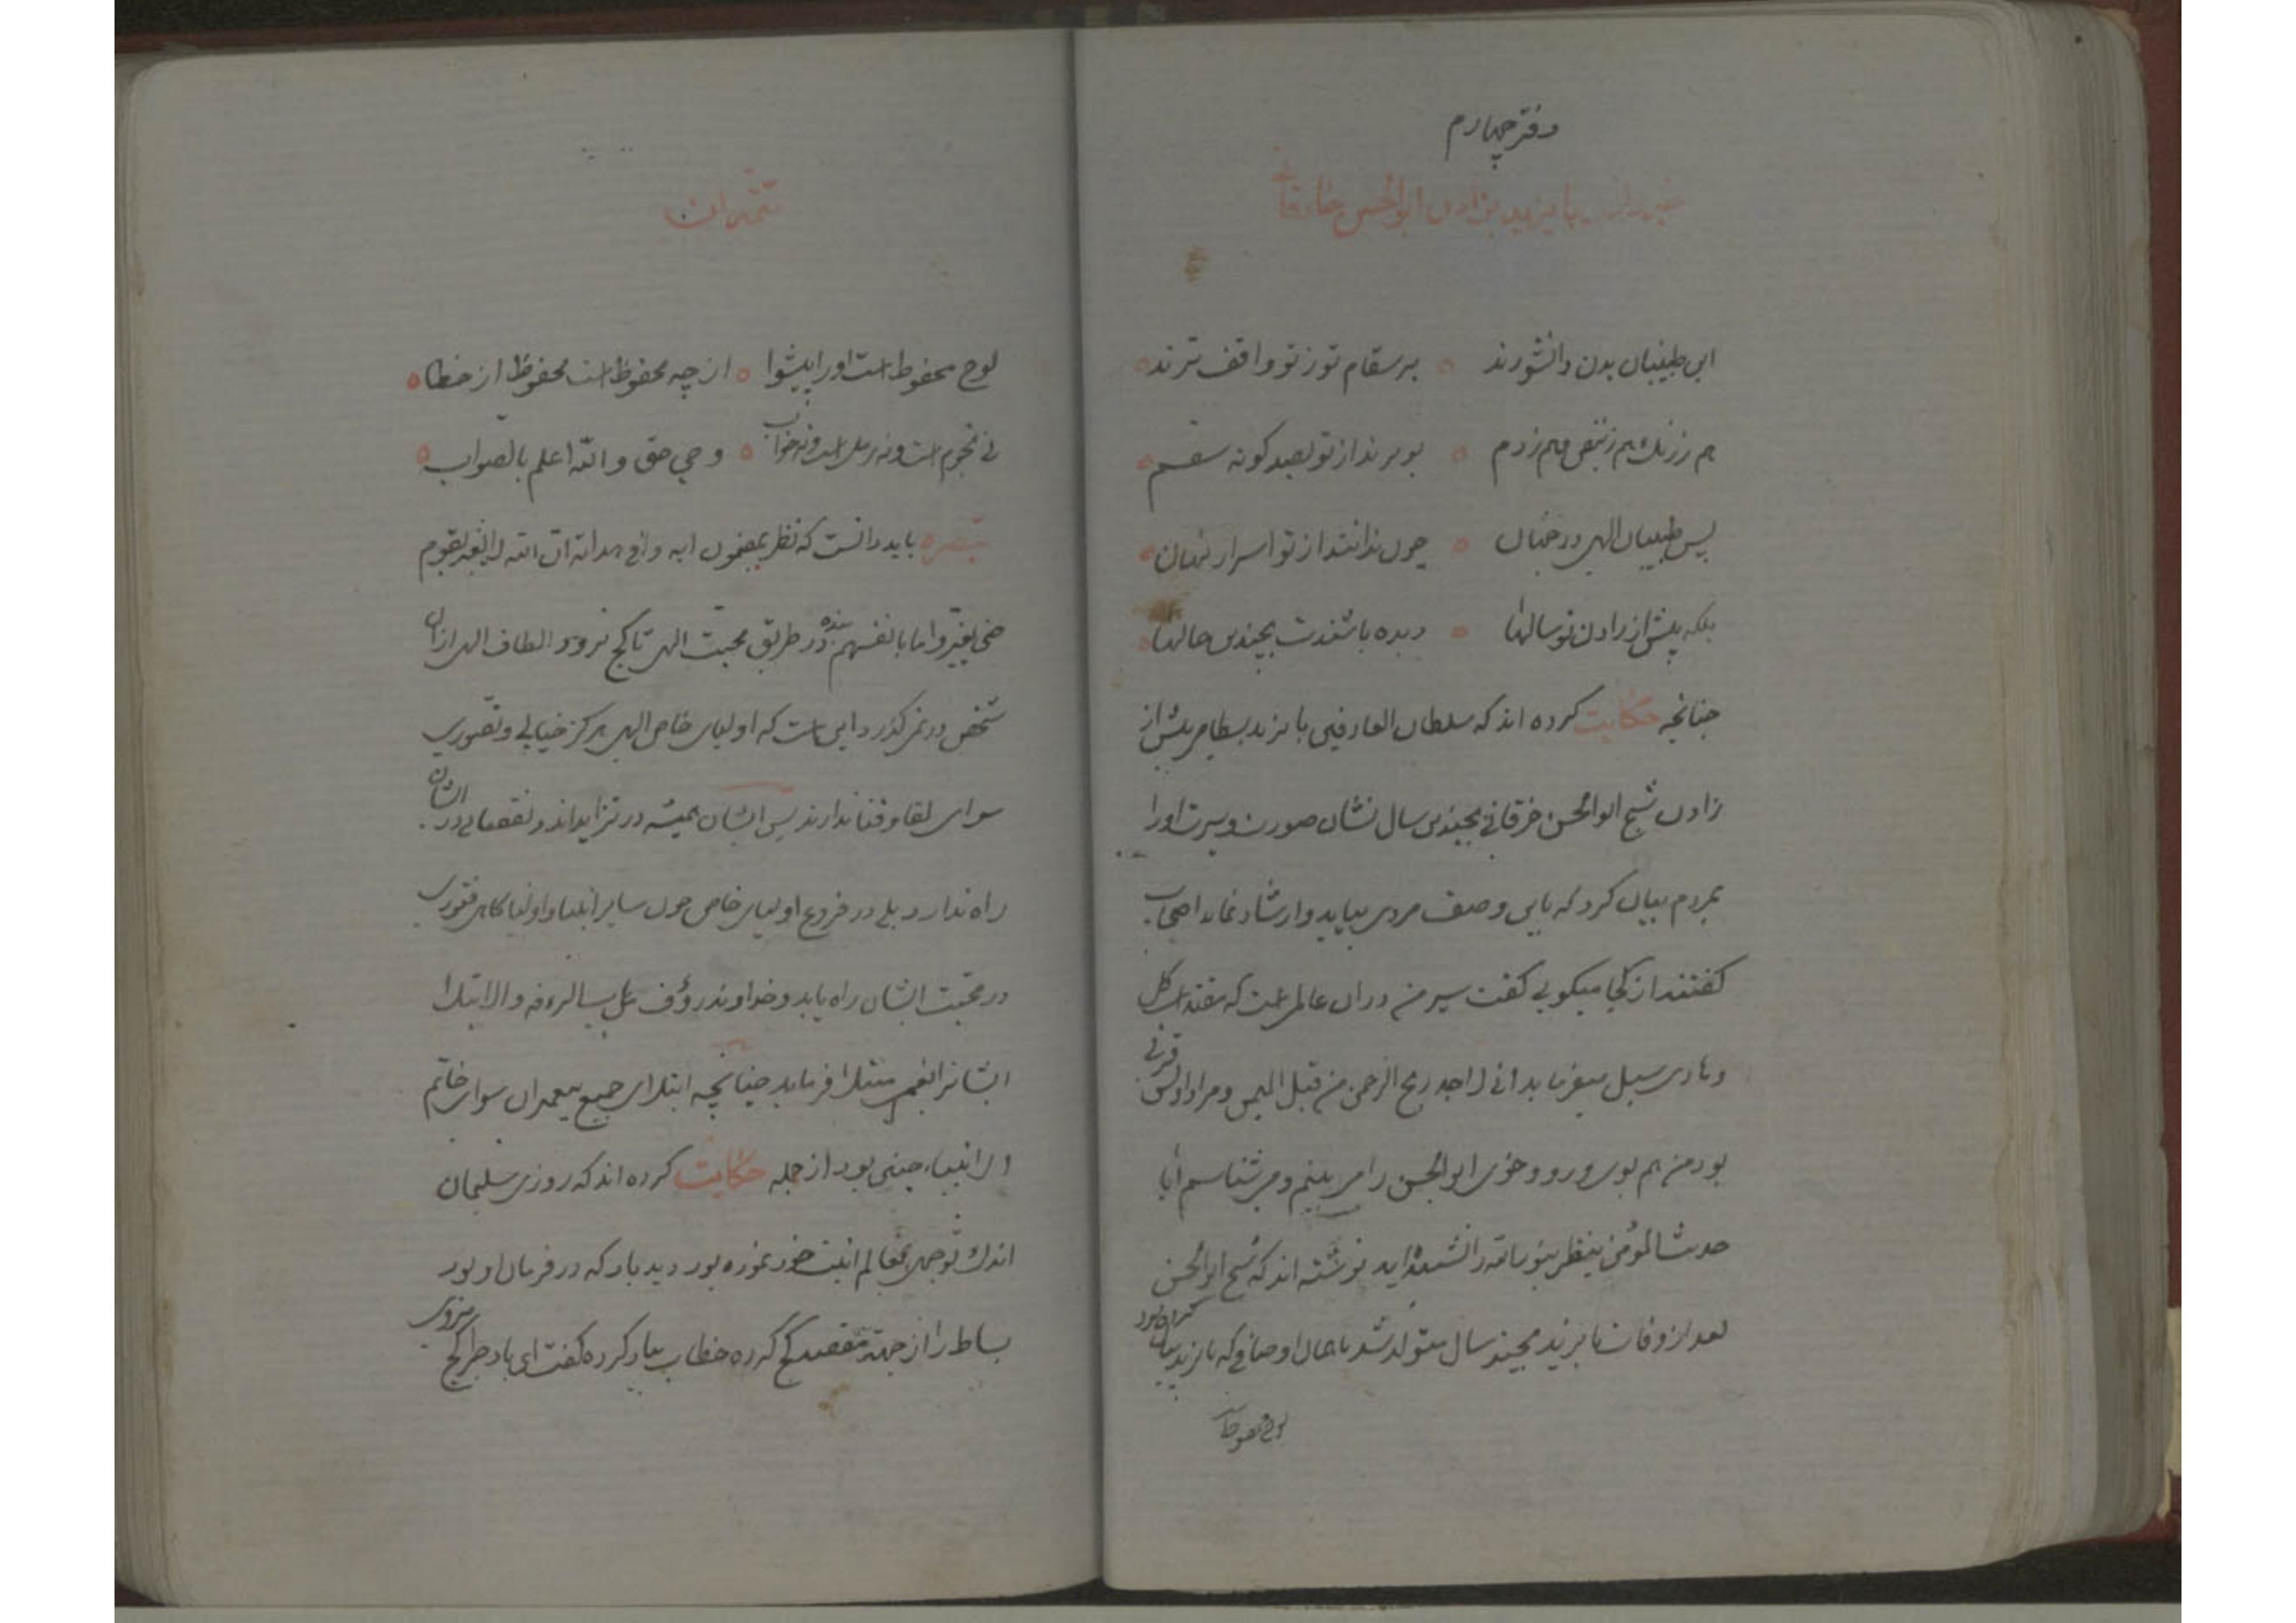 دفتر چهارم
خبر دادن بایزید بزادن ابوالحسن خارقانی
این طبیبان بدن دانشورند ه بر سقام تو ز تو واقف ترند ه
هم ز رنگ هم ز نبض هم ز دم ه بو برند از تو بصد گونه سقم ه
پس طبیبان الهی در جهان ه چون ندانند از تو اسرار نهان ه
بلکه پیش از زادن تو سالها ه دیده باشندت بچندین حالها ه
چنانچه حکایت کرده اند که سلطان العارفین بایزید بسطامی پیش از
زادن شیخ ابوالحسن خرقانی بچندین سال نشان صورت و سیرت او را
بمردم بیان کرد که باین وصف مردی بیاید و ارشاد نماید اصحاب
گفتند از کجا میگویی گفت سیر من در آن عالم است که
و هادی سبل میفرماید انی لاجد ریح الرحمن من قبل الیمن و مراد اویس قرنی
بود من هم بوی و رو و خوی ابوالحسن را می بینم و می شناسم آیا
حدیث المؤمن ینظر بنور الله را نشنیده اید نوشته اند که شیخ ابوالحسن
بعد از وفات بایزید بچند سال متولد شد با همان اوصافی که بایزید بیان کرده بود
لوح محفوظ
تتمه ان
لوح محفوظ است او را پیشوا ه از چه محفوظ است محفوظ از خطا ه
نی نجوم است و نه رمل است و نه خواب ه وحی حق و الله اعلم بالصواب ه
تبصره باید دانست که نظر بمضمون ایه وافی هدایة ان الله لا یغیر بقوم
حتی یغیروا ما بانفسهم بنده در طریق محبت الهی تا کج نرود الطاف الهی از ان
شخص در نمی گذرد این است که اولیای خاص الهی هرگز خیالی و تصوری
سوای لقا و فنا ندارند پس ایشان همیشه در تزایداند و نقصانی در ایشان
راه ندارد بلی در فروع اولیای خاص چون سایر انبیا و اولیا گاهی فتوری
در محبت ایشان راه یابد و خداوند رؤف علی سبیل الرءفه و الابتلا
ایشانرا بغمی مبتلا فرماید چنانچه ابتلای جمیع پیغمبران سوای خاتم
الانبیاء چنین بود از جمله حکایت کرده اند که روزی سلیمان
اندک توجهی بعالم انیت خود نموده بود دید باد که در فرمان او بود
بساط را از جهة مقصد کج کرده خطاب بباد کرده گفت ای باد چرا کج میروی